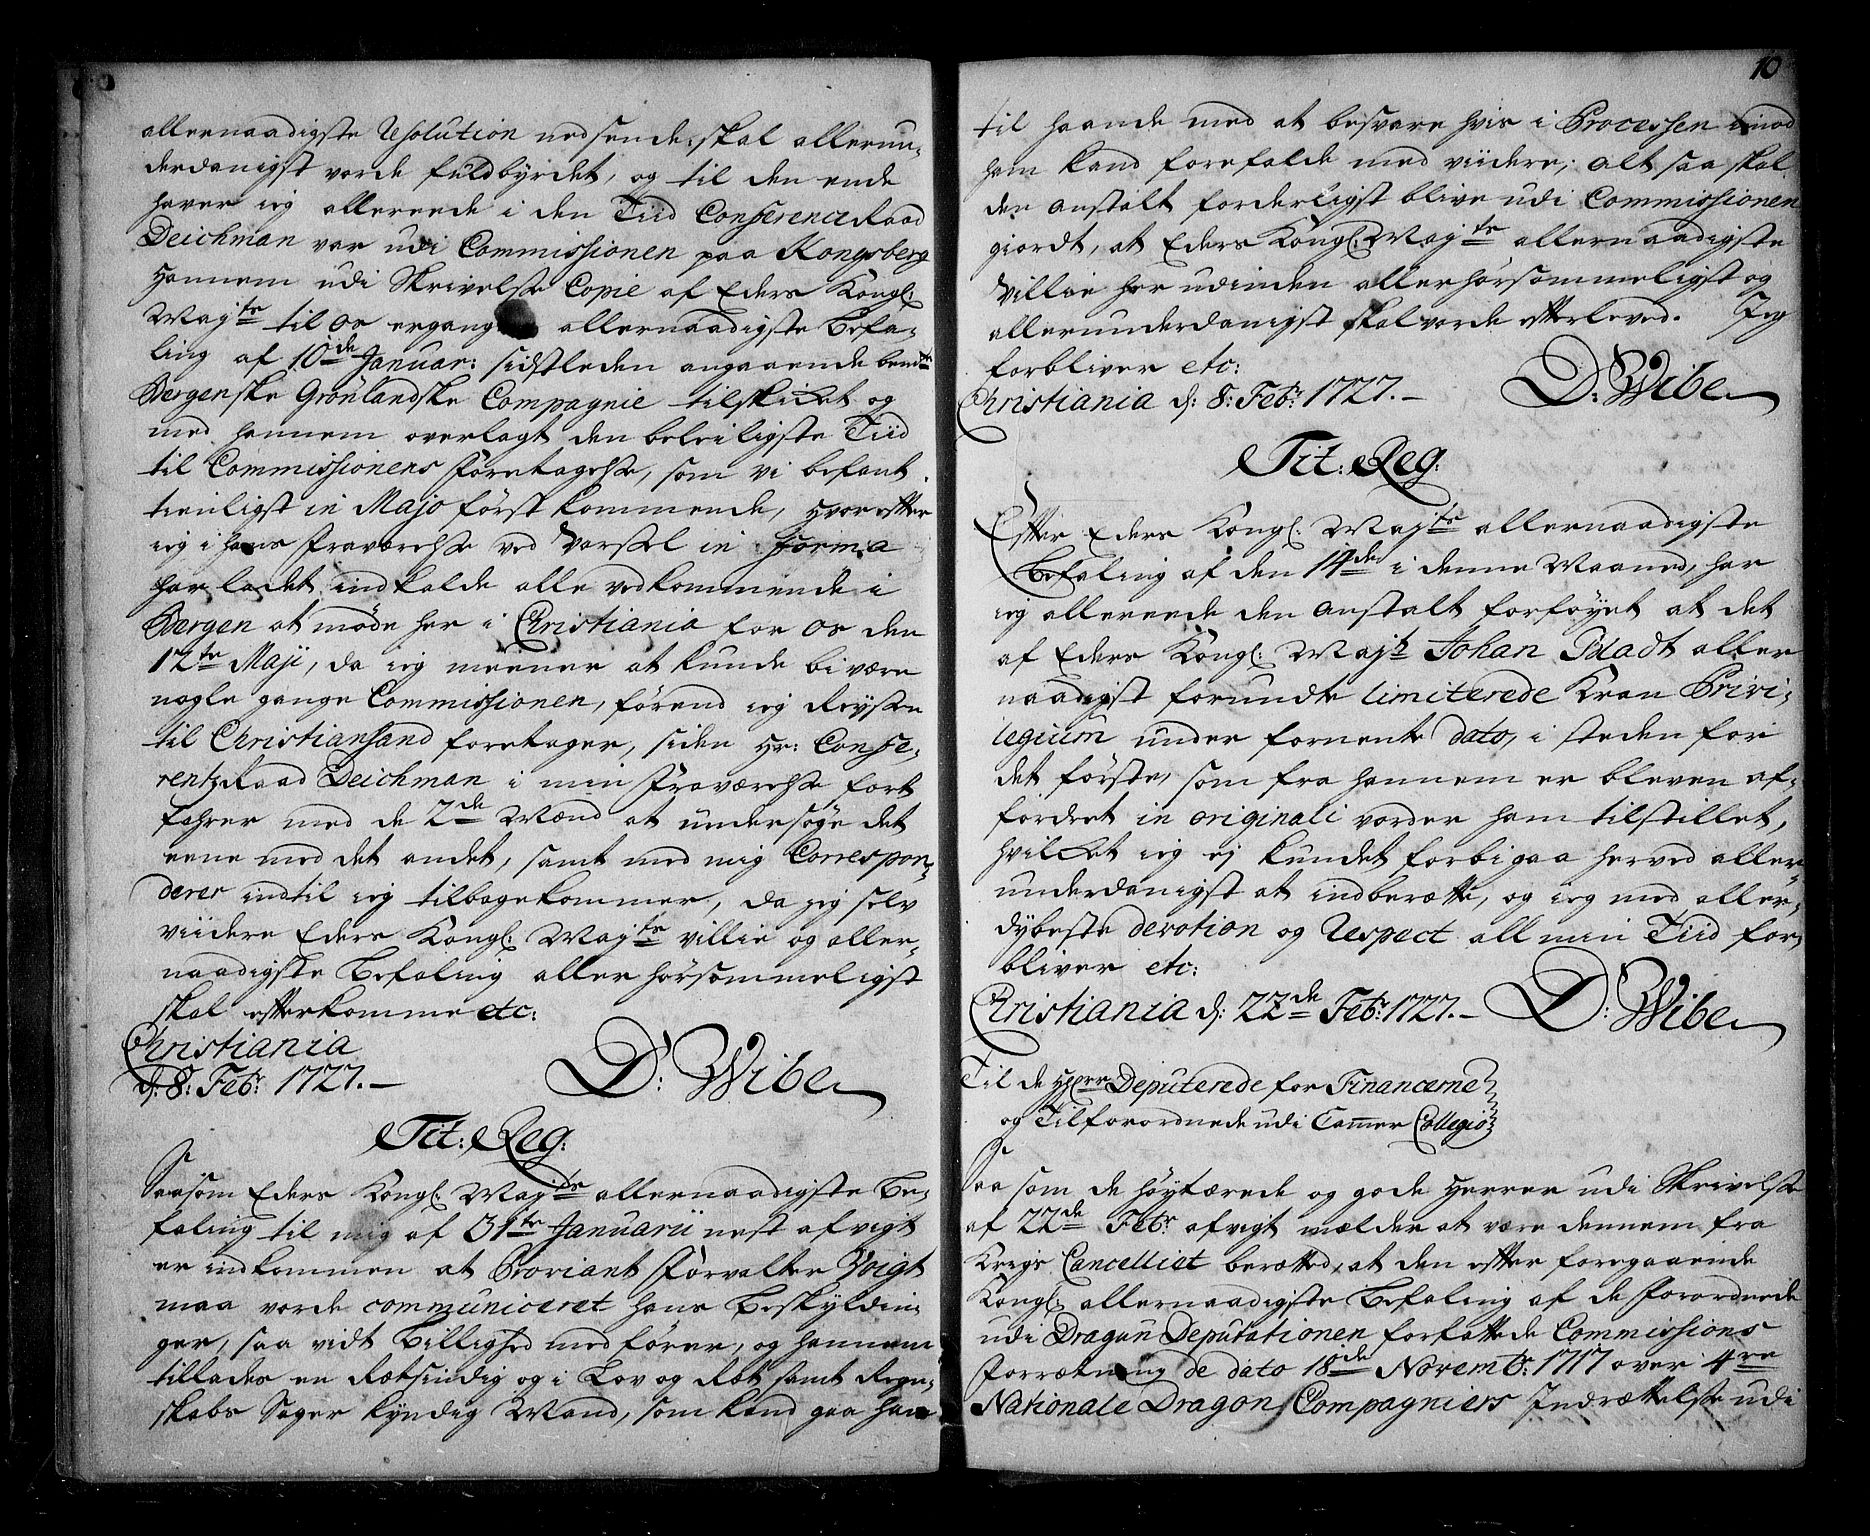 allernaadigste Resolution nedsende, skal allerun-
derdanigst vorde fuldbyrdet, og til den ende
haver ieg allereede i den Tiid Conference Raad
Deichman var udi Commissionen paa Kongsberg
Hannem udi Skrivelse Copie af Eders Kongl:
Majts til os ergangne allernaadigste Befa-
ling af 10de Januar: sidstleden angaaende bemte
Bergenske Grönlandske Compagnie tilskicket og
med hannem overlagt den beleiligste Tiid
til Commissionens Foretagelse, som vi befant
tienligst in Majo först kommende, hvorefter
ieg i hans Fraværelse ved Varsel in Forma
har ladet indkalde alle vedkommende i
Bergen at möde her i Christiania for os den
12te Maji, da ieg meener at kunde bivære
nogle gange Commissionen, förend ieg Reysen
til Christiansand foretager, siden Hr: Confe-
rentz Raad Deichman i min Fraværelse fort
fahrer med de 2de Mænd at undersöge det
eene med det andet, samt med mig Correspon-
derer indtil ieg tilbagekommer, da jeg selv
viidere Eders Kongl: Majts villie og aller-
naadigste Befaling allerhörsommeligst
skal efterkomme etc:
Christiania
d: 8: Febr: 1727.
D: Wibe
Tit: Reg:
Saasom Eders Kongl: Majts allernaadigste Be-
faling til mig af 31te Januarii nest afvigt
er indkommen at Proviant Forvalter Voigt
maa vorde communiceret hans Beskyldin-
ger, saa vidt Billighed medförer, og hannem
tillades en Retsindig og i Lov og Ret samt Regn-
skabs Sager kyndig Mand, som kand gaa ham
10
til haande med at besvare hvis i Processen imod
ham kand forefalde med viidere; alt saa skal
den anstalt forderligst blive udi Commissionen
giordt, at Eders Kongl: Majts allernaadigste
Villie her udinden allerhörsommeligst og
allerunderdanigst skal vorde efterleved. Jeg
forbliver etc:
Christiania d: 8: Febr: 1727.
D: Wibe
Tit: Reg:
Efter Eders Kongl: Majts allernaadigste
Befaling af den 14de i denne Maaned, har
ieg allereede den anstalt forföyet at det
af Eders Kongl: Majts Johan Bladt aller
naadigst forundte limiterede Kran Privi-
legium under fornente dato, i steden for
det förste, som fra hannem er bleven af-
fordret in originali vorder ham tilstillet,
hvilcket ieg ej kundet forbigaa herved aller-
underdanigst at indberætte, og ieg med aller-
dybeste devotion og Respect all min Tiid for-
bliver etc:
Christiania d: 22de Febr: 1727.
D: Wibe
Til de Hrer Deputerede for Financerne
og Tilforordnede udi Cammer Collegio
Saa som de höytærede og gode Herrer udi Skrivelse
af 22de Febr: afvigt mælder at være dennem fra
Krigs Cancelliet beretted, at den efter foregaaende
Kongl: allernaadigste Befaling af de Forordnede
udi Dragun Deputationen forfattede Commissions
Forretning de dato 18de Novembr: 1717 over 4re
Nationale Dragon Compagniers Indrættelse udi